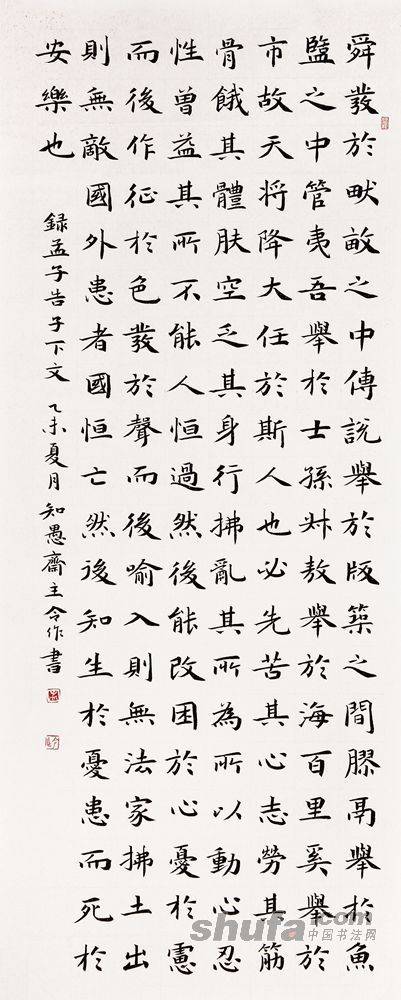 舜發於畎畝之中傳說舉於版築之間膠鬲舉於魚
鹽之中管夷吾舉於士孫叔敖舉於海百里奚舉於
市故天将降大任於斯人也必先苦其心志勞其筋
骨餓其體肤空乏其身行拂亂其所為所以動心忍
性曾益其所不能人恒過然後能改困於心憂於憲
而後作征於色發於聲而後喻入則無法家拂土出
則無敵國外患者國恒亡然後知生於憂患而死於
安樂也
録孟子告子下文 乙未夏月 知愚齋主令作書
shufa.com
中国书法网